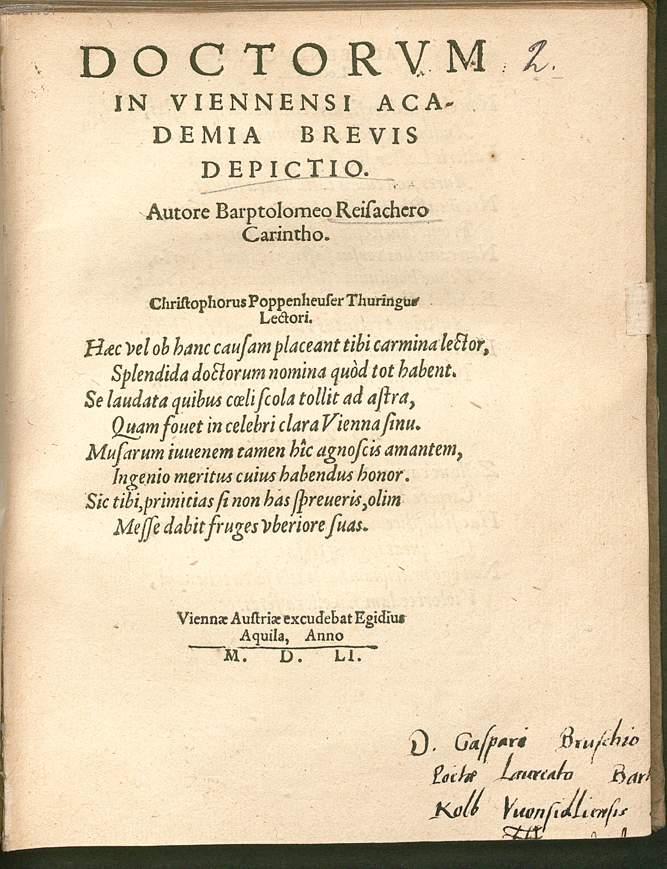 DOCTORVM 2.
IN VIENNENSI ACA-
DEMIA BREVIS
DEPICTIO.
Autore Barptolomeo Reiſachero
Carintho.
Chriſtophorus Poppenheuſer Thuringus
Lectori.
Hæc vel ob hanc cauſam placeant tibi carmina lector,
Splendida doctorum nomina quòd tot habent.
Se laudata quibus cœli ſcola tollit ad aſtra,
Quam fouet in celebri clara Vienna ſinu.
Muſarum iuuenem tamen hîc agnoſcis amantem,
Ingenio meritus cuius habendus honor.
Sic tibi, primitias ſi non has ſpreueris, olim
Meſſe dabit fruges vberiore ſuas.
Viennæ Auſtriæ excudebat Egidius
Aquila, Anno
M. D. LI.
D. Gaſpari Bruſchio
Poetæ Laureato Bar
Kolb Vuonſidlienſis